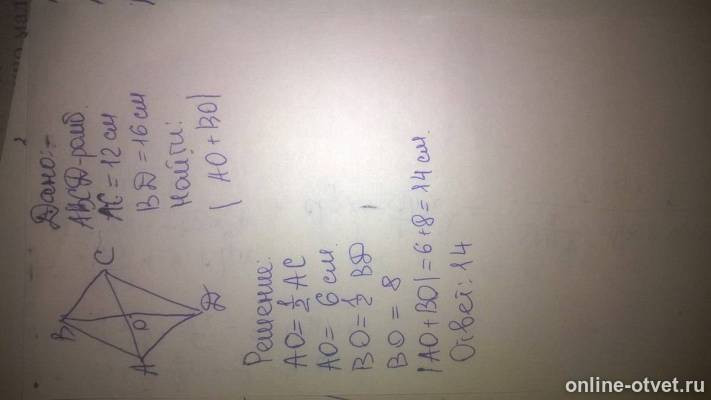 Дано:-
ABCD-ромб.
AC = 12 см
BD = 16 см
Найти:
| AO + BO |
B
C
O
A
D
Решение:
AO = 1/2 AC
AO = 6 см
BO = 1/2 BD
BO = 8
|AO + BO| = 6 + 8 = 14 см.
Ответ: 14
online-otvet.ru